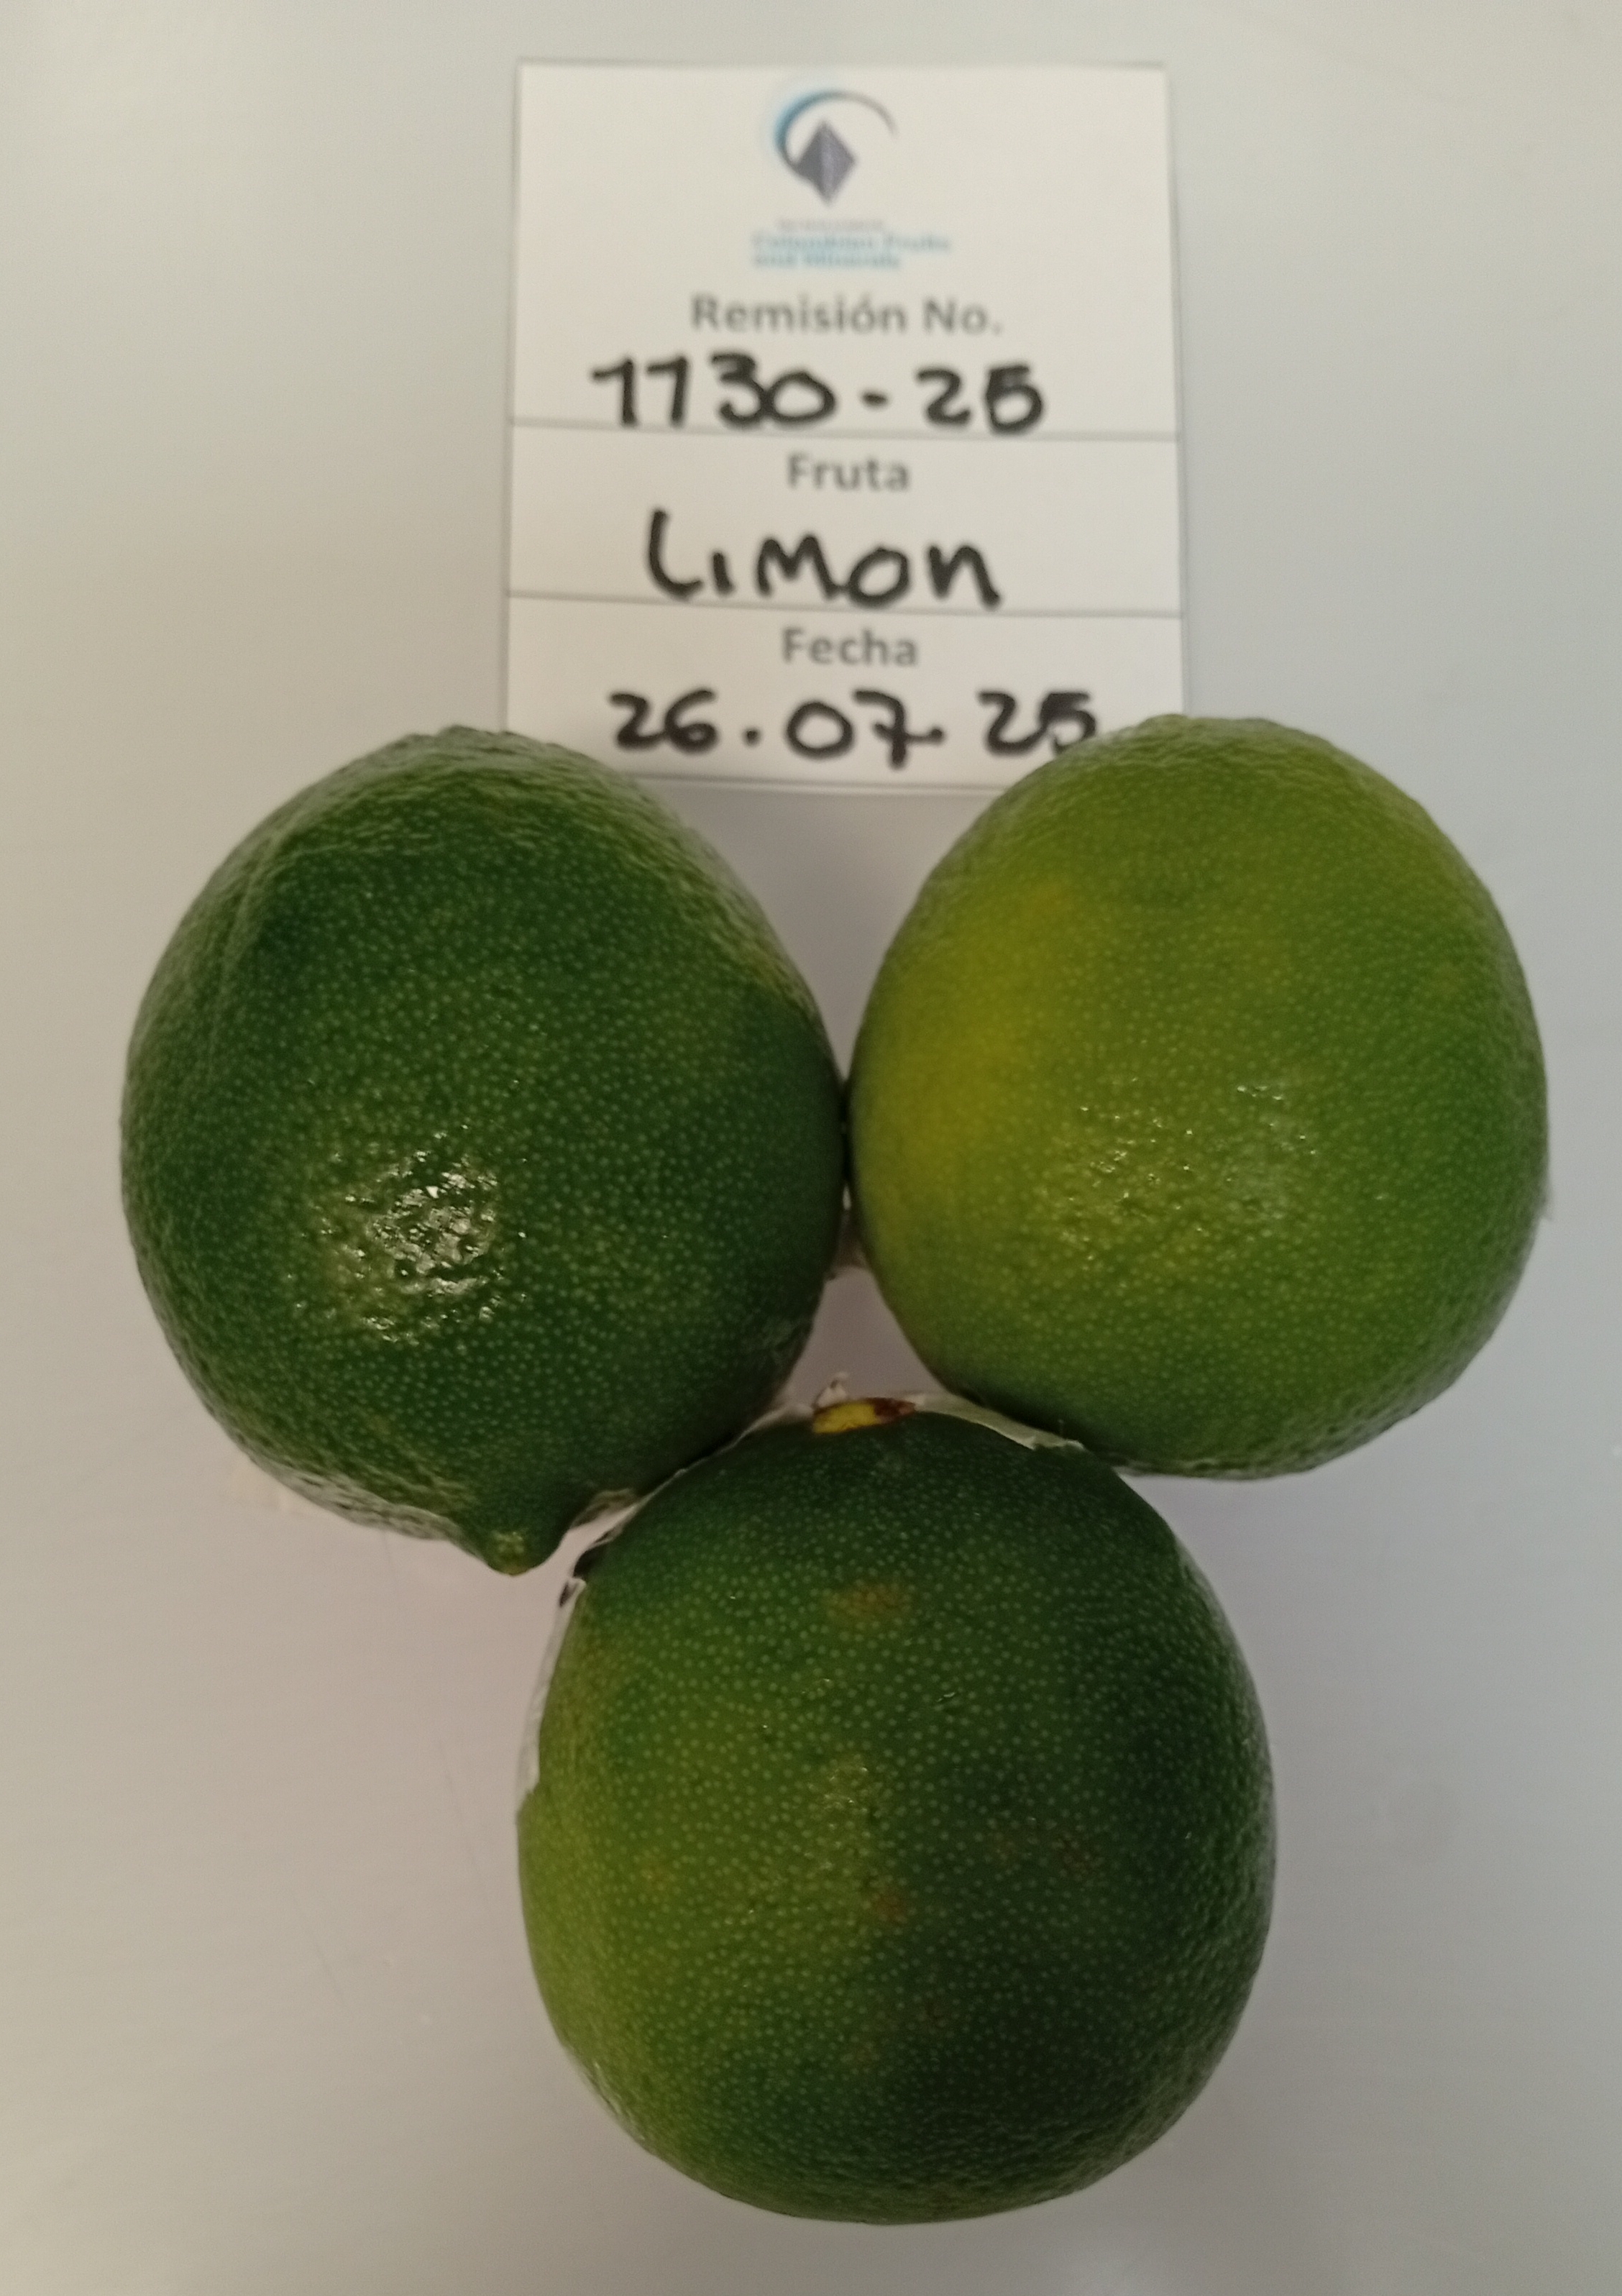 Colombian Fruits
and Minerals
Remisión No.
1130-25
Fruta
Limon
Fecha
26.07.25